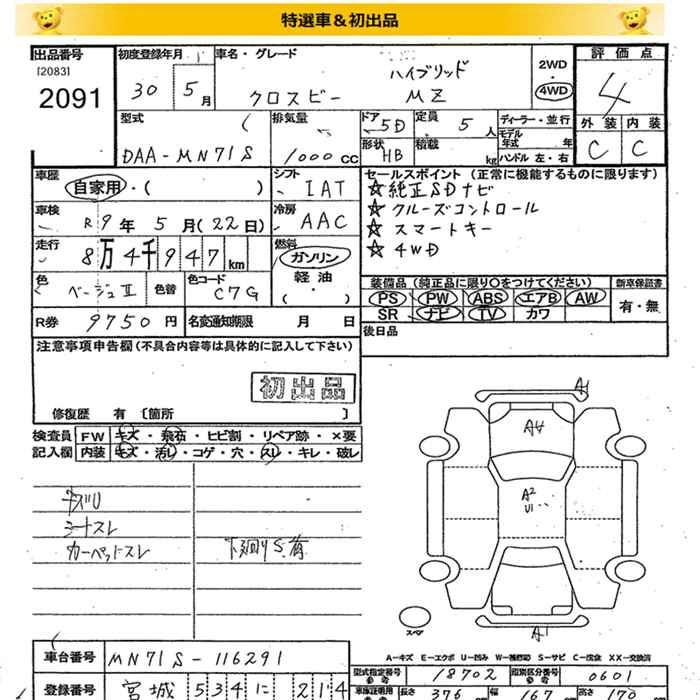 特選車＆初出品
出品番号 [2083] 2091
初度登録年月 30 5月
車名・グレード クロスビー ハイブリッド MZ
2WD 4WD
評価点 4
外装 内装 C C
型式 DAA-MN71S
排気量 1000cc
ドア 5D 形状 HB
定員 5人 積載 kg
ディーラー・並行 モデル年式 年 ハンドル 左・右
車歴 自家用・( )
シフト IAT
セールスポイント (正常に機能するものに限ります)
☆純正SDナビ
☆クルーズコントロール
☆スマートキー
☆4WD
車検 R9年 5月(22日)
冷房 AAC
走行 8万4千947km
燃料 ガソリン 軽油 ・( )
色 ベージュII 色替
色コード C7G
装備品 (純正品に限り○をつけてください) 新車保証書
PS PW ABS エアB AW 有・無
SR ナビ TV カワ
R券 9750円 名変通知期限 月 日
後日品
注意事項申告欄 (不具合内容等は具体的に記入して下さい)
初出品
修復歴 有 [箇所 ]
検査員 記入欄
FW キズ・飛石・ヒビ割・リペア跡・×要
内装 キズ・汚レ・コゲ・穴・スレ・キレ・破レ
キズU
シートスレ
カーペットスレ 下廻りS有
A1
A4
A2
U1
A1
スペア
A－キズ E－エクボ U－凹み W－補修跡 S－サビ C－腐食 XX－交換済
車台番号 MN71S-116291
型式指定番号 参考 18702 類別区分番号 参考 0601
登録番号 宮城 534 に 214
車庫証明用 参考 長さ 376 幅 167 高さ 170